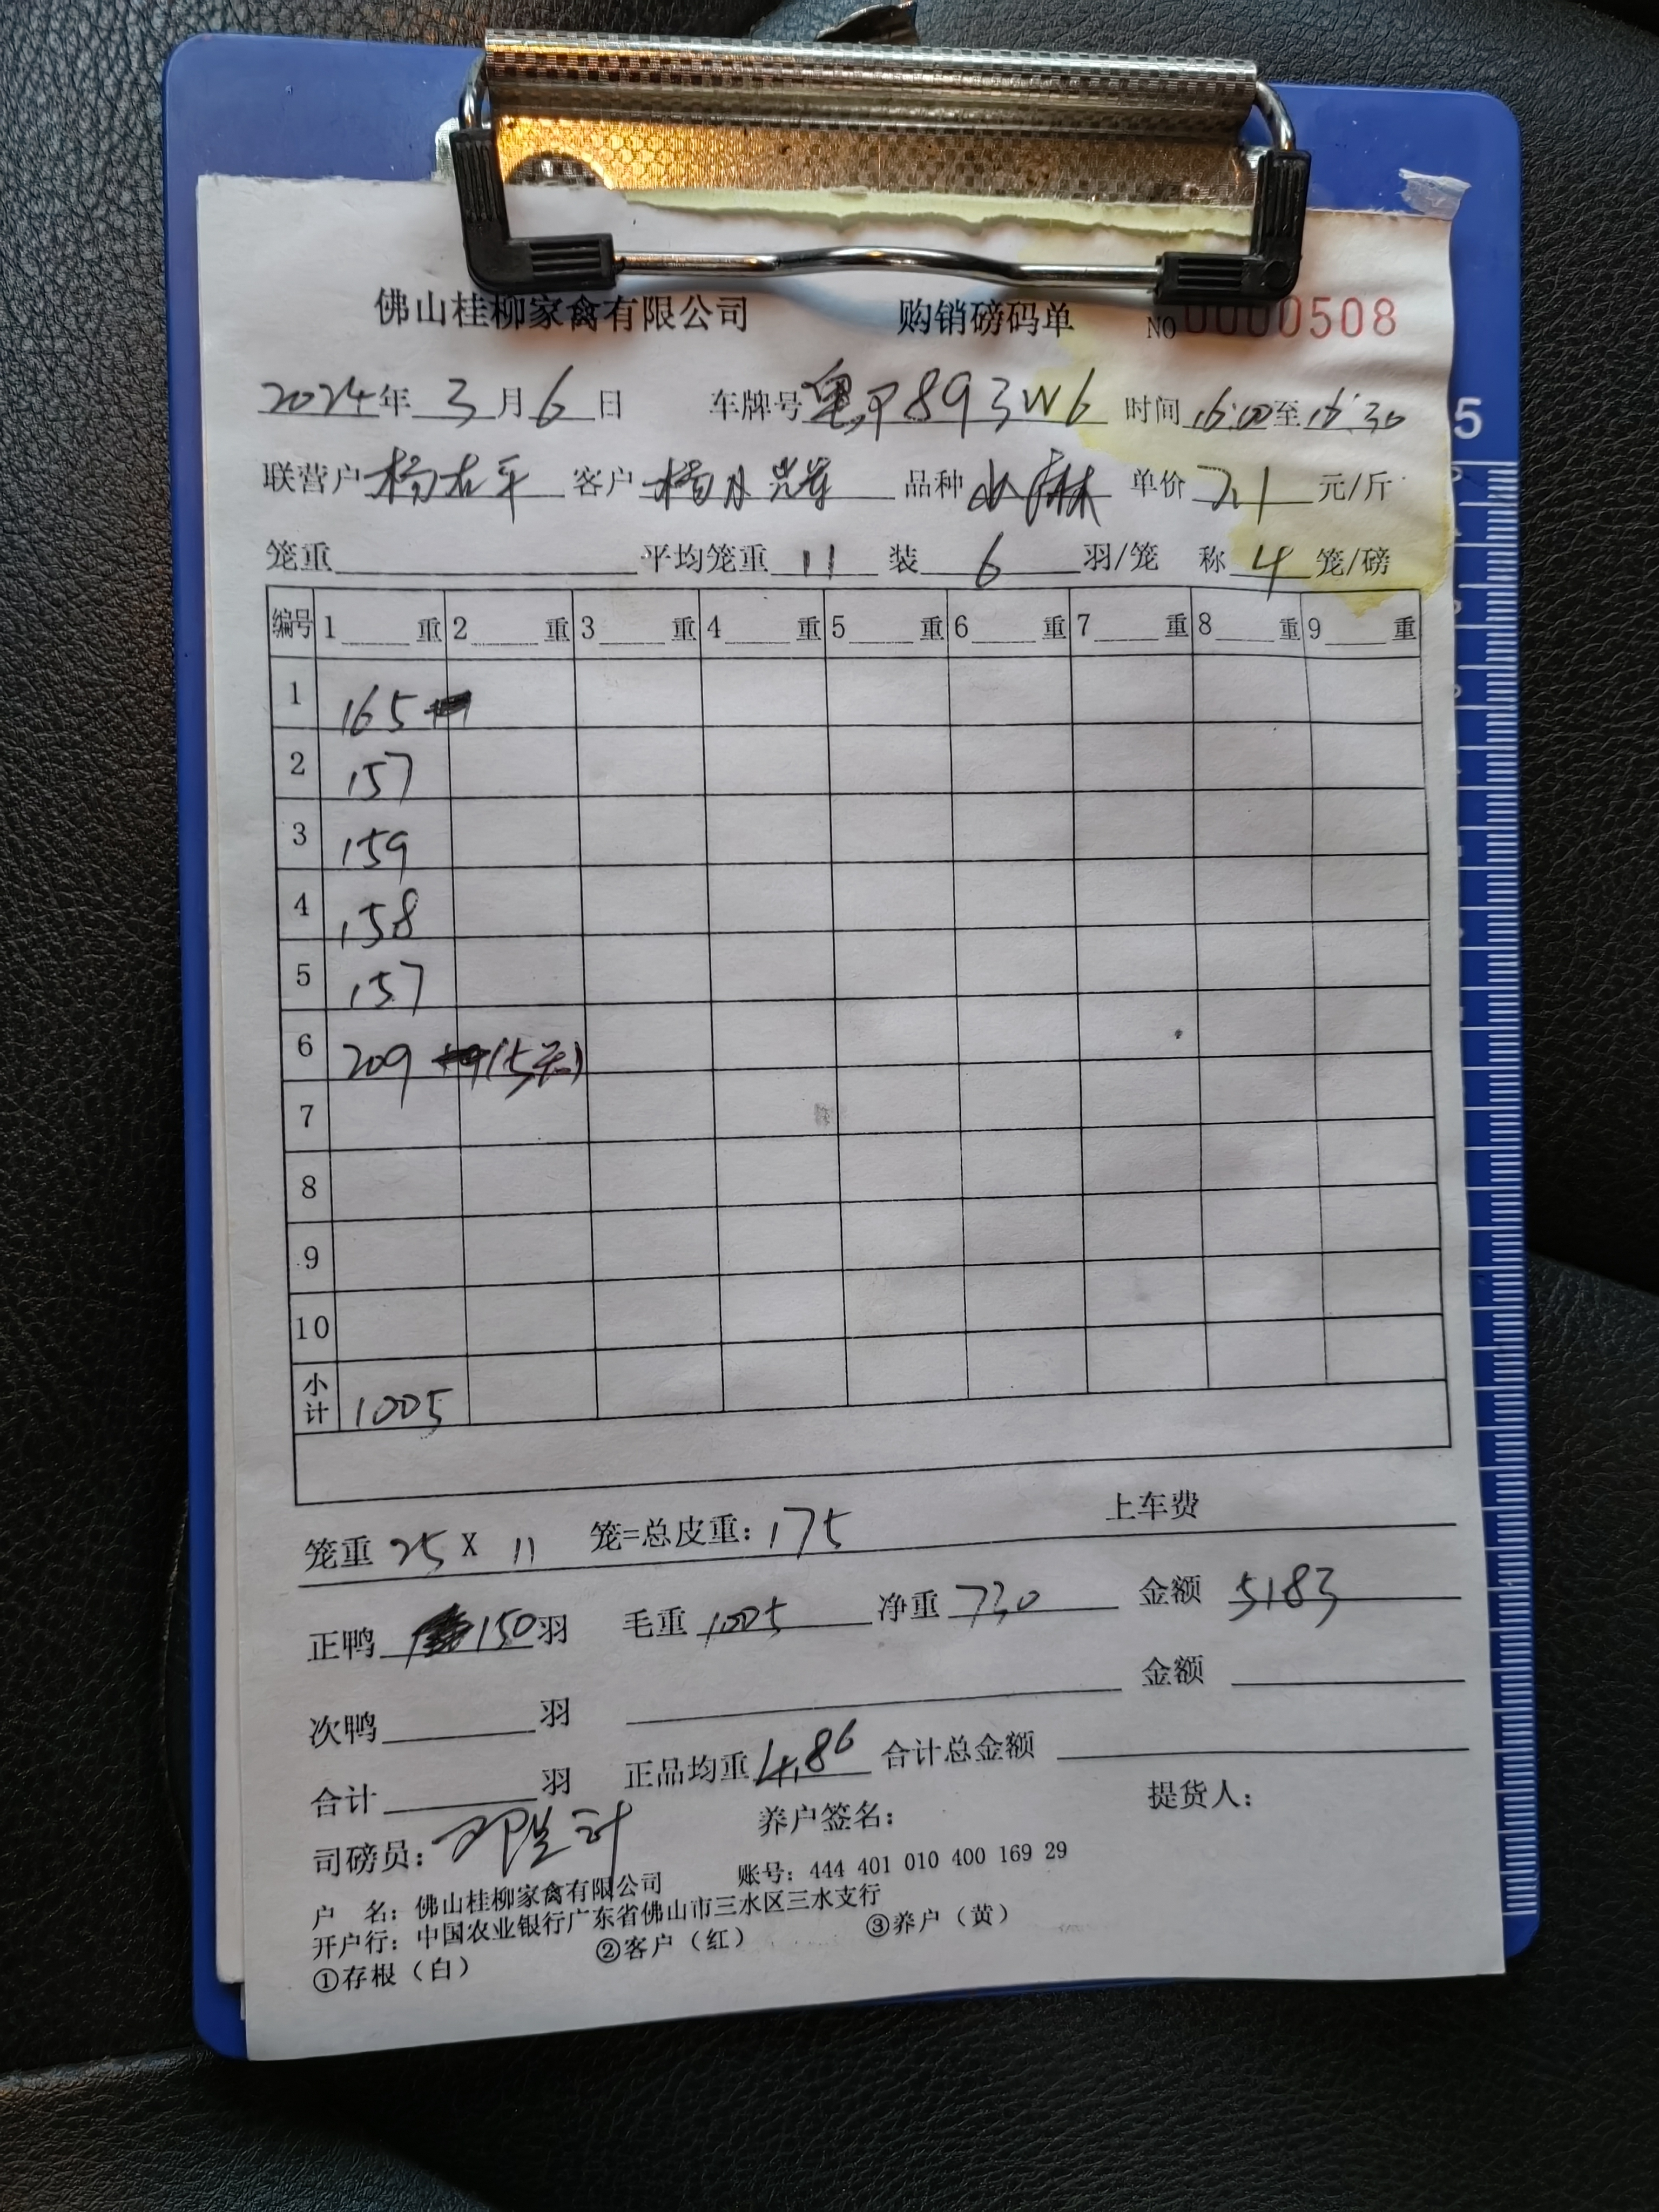 佛山桂柳家禽有限公司 购销磅码单 NO 0000508
2024年 3月 6日 车牌号 粤P893W6 时间 16:00至16:30
联营户 杨右平 客户 杨月 品种 小麻 单价 7.1 元/斤
笼重 平均笼重 11 装 6 羽/笼 称 4 笼/磅
编号 1 重 2 重 3 重 4 重 5 重 6 重 7 重 8 重 9 重
1 165
2 157
3 159
4 158
5 157
6 209 (5笼)
7
8
9
10
小计 1005
笼重 25 X 11 笼=总皮重: 175 上车费
正鸭 150羽 毛重 1005 净重 730 金额 5183
次鸭 羽 金额
合计 羽 正品均重 4.86 合计总金额
司磅员: 养户签名: 提货人:
户 名: 佛山桂柳家禽有限公司 账号: 444 401 010 400 169 29
开户行: 中国农业银行广东省佛山市三水区三水支行
①存根（白） ②客户（红） ③养户（黄）
5